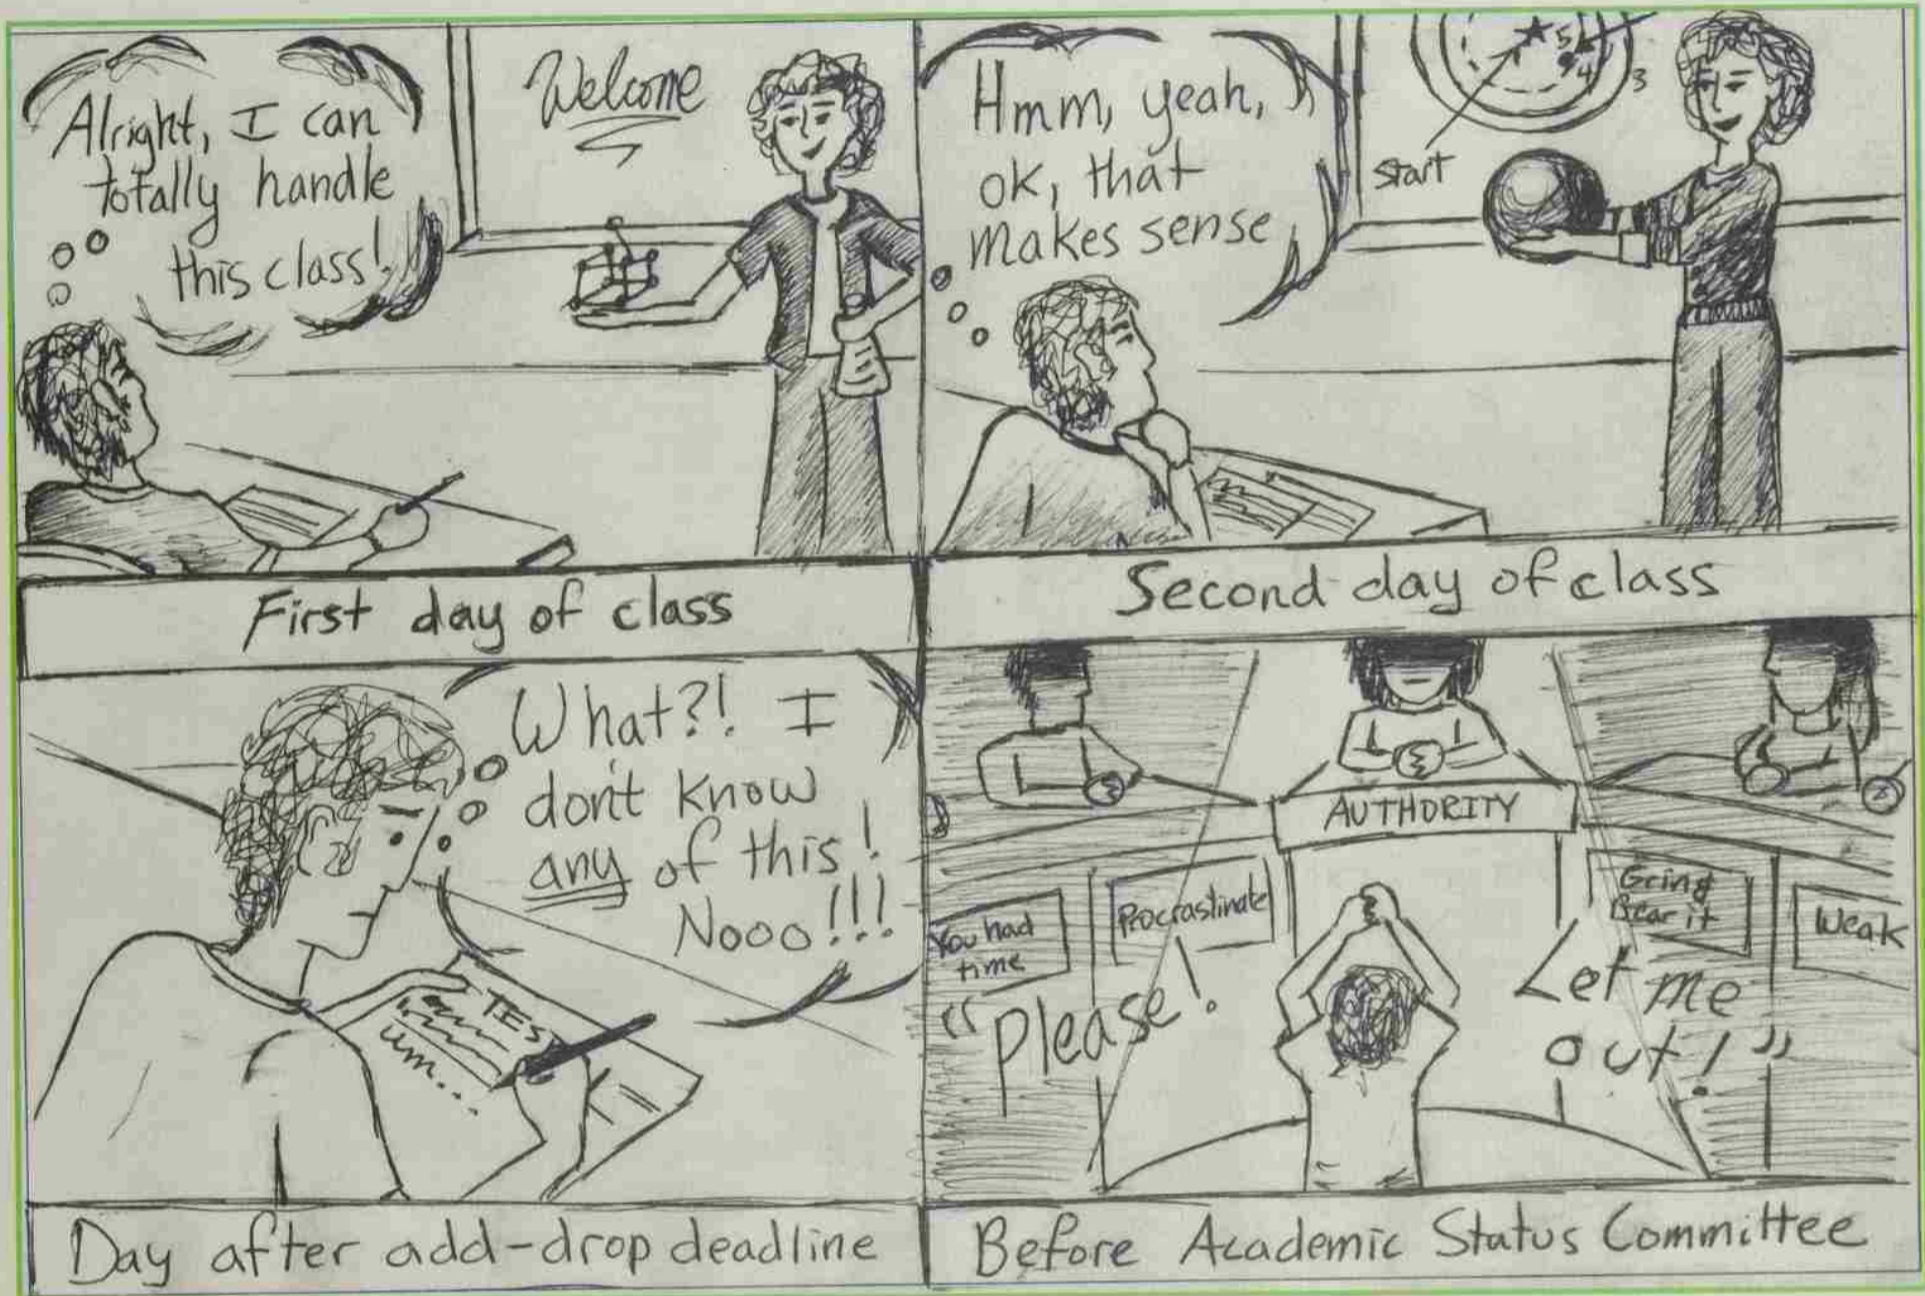 Alright, I can
totally handle
this class!
Welcome
First day of class
Hmm, yeah,
ok, that
makes sense
5
4
3
start
Second day of class
What?! I
don't know
any of this!
Nooo!!!
TEST
um...
Day after add-drop deadline
AUTHORITY
You had
time
Procrastinate
Grin &
Bear it
Weak
"Please!
Let me
out!"
Before Academic Status Committee